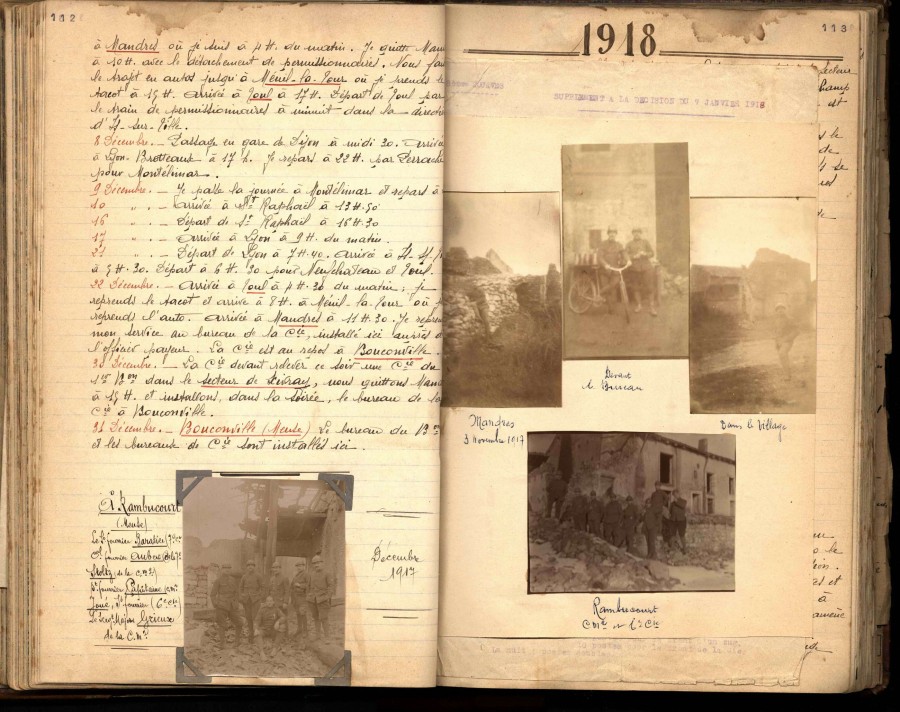 112
à Mandres où je suis à 4 H. du matin. Je quitte Man
à 10 H. avec le détachement de permissionnaires. Nous fai
le trajet en autos jusqu'à Ménil-la-Tour où je prends le
tacot à 15 H. Arrivée à Toul à 17 H. Départ de Toul par
le train de permissionnaires à minuit dans la direct
d'Is-sur-Tille.
8 Décembre. — Passage en gare de Dijon à midi 30. Arrivée
à Lyon-Brotteaux à 17 h. Je repars à 22 H. par Perrache
pour Montélimar.
9 Décembre. — Je passe la journée à Montélimar et repars à
10 „ . — Arrivée à St Raphaël à 13 H. 50
16 „ . — Départ de St Raphaël à 16 H. 30
17 „ . — Arrivée à Lyon à 9 H. du matin.
21 „ . — Départ de Lyon à 7 H. 40. Arrivée à
à 5 H. 30. Départ à 6 H. 30 pour Neufchateau et Toul.
22 Décembre. — Arrivée à Toul à 4 H. 30 du matin ; je
reprends le tacot et arrive à 8 H. à Ménil-la-Tour où je
reprends l'auto. Arrivée à Mandres à 11 H. 30. Je repren
mon service au bureau de la Cie, installé ici auprès d
l'officier payeur. La Cie est au repos à Bouconville.
30 Décembre. — La Cie devant relever ce soir une Cie du
1er Bon dans le secteur de Xivray, nous quittons Mand
à 15 H. et installons, dans la soirée, le bureau de la
Cie à Bouconville.
31 Décembre. — Bouconville (Meuse) Le bureau du Bon
et les bureaux de Cie sont installés ici.
A Rambucourt
(Meuse)
de la C.M.
Décembre
1917
113
1918
SUPPLEMENT A LA DECISION DU 9 JANVIER 1918
Mandres
3 novembre 1917
Devant
le Bureau
Dans le Village
Rambucourt